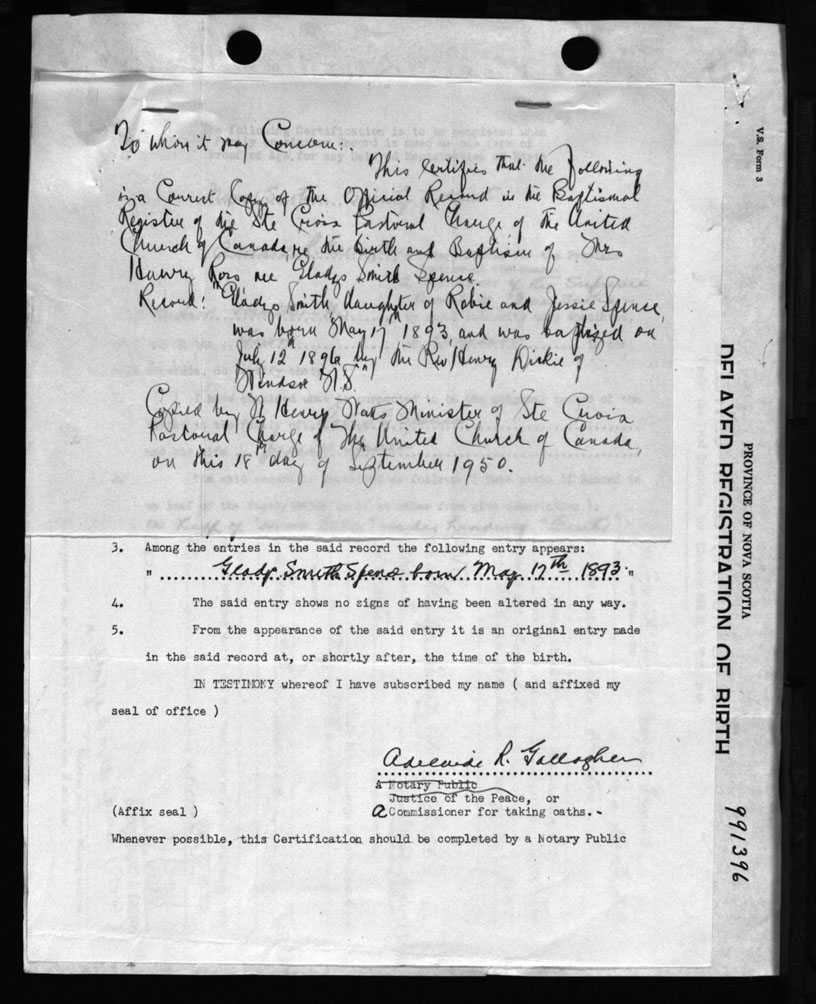 To Whom it may Concern:
This certifies that the Following
is a Correct Copy of the Official Record in the Baptismal
Register of the Ste Croix Pastoral Charge of the United
Church of Canada, re the birth and Baptism of Mrs
Henry Ross nee Gladys Smith Spence.
Record: "Gladys Smith, daughter of Robie and Jessie Spence,
was born May 17th 1893, and was baptized on
July 12th 1896 by the Rev Henry Dickie of
Windsor N.S."
Copied by Henry Minister of Ste Croix
Pastoral Charge of The United Church of Canada,
on this 18th day of September 1950.
3. Among the entries in the said record the following entry appears:
" Gladys Smith Spence born May 17th 1893 "
4. The said entry shows no signs of having been altered in any way.
5. From the appearance of the said entry it is an original entry made
in the said record at, or shortly after, the time of the birth.
IN TESTIMONY whereof I have subscribed my name ( and affixed my
seal of office )
Adelaide R. Gallagher
A Notary Public
Justice of the Peace, or
(Affix seal ) a Commissioner for taking oaths.
Whenever possible, this Certification should be completed by a Notary Public
V.S. Form 3
PROVINCE OF NOVA SCOTIA
DELAYED REGISTRATION OF BIRTH
991396